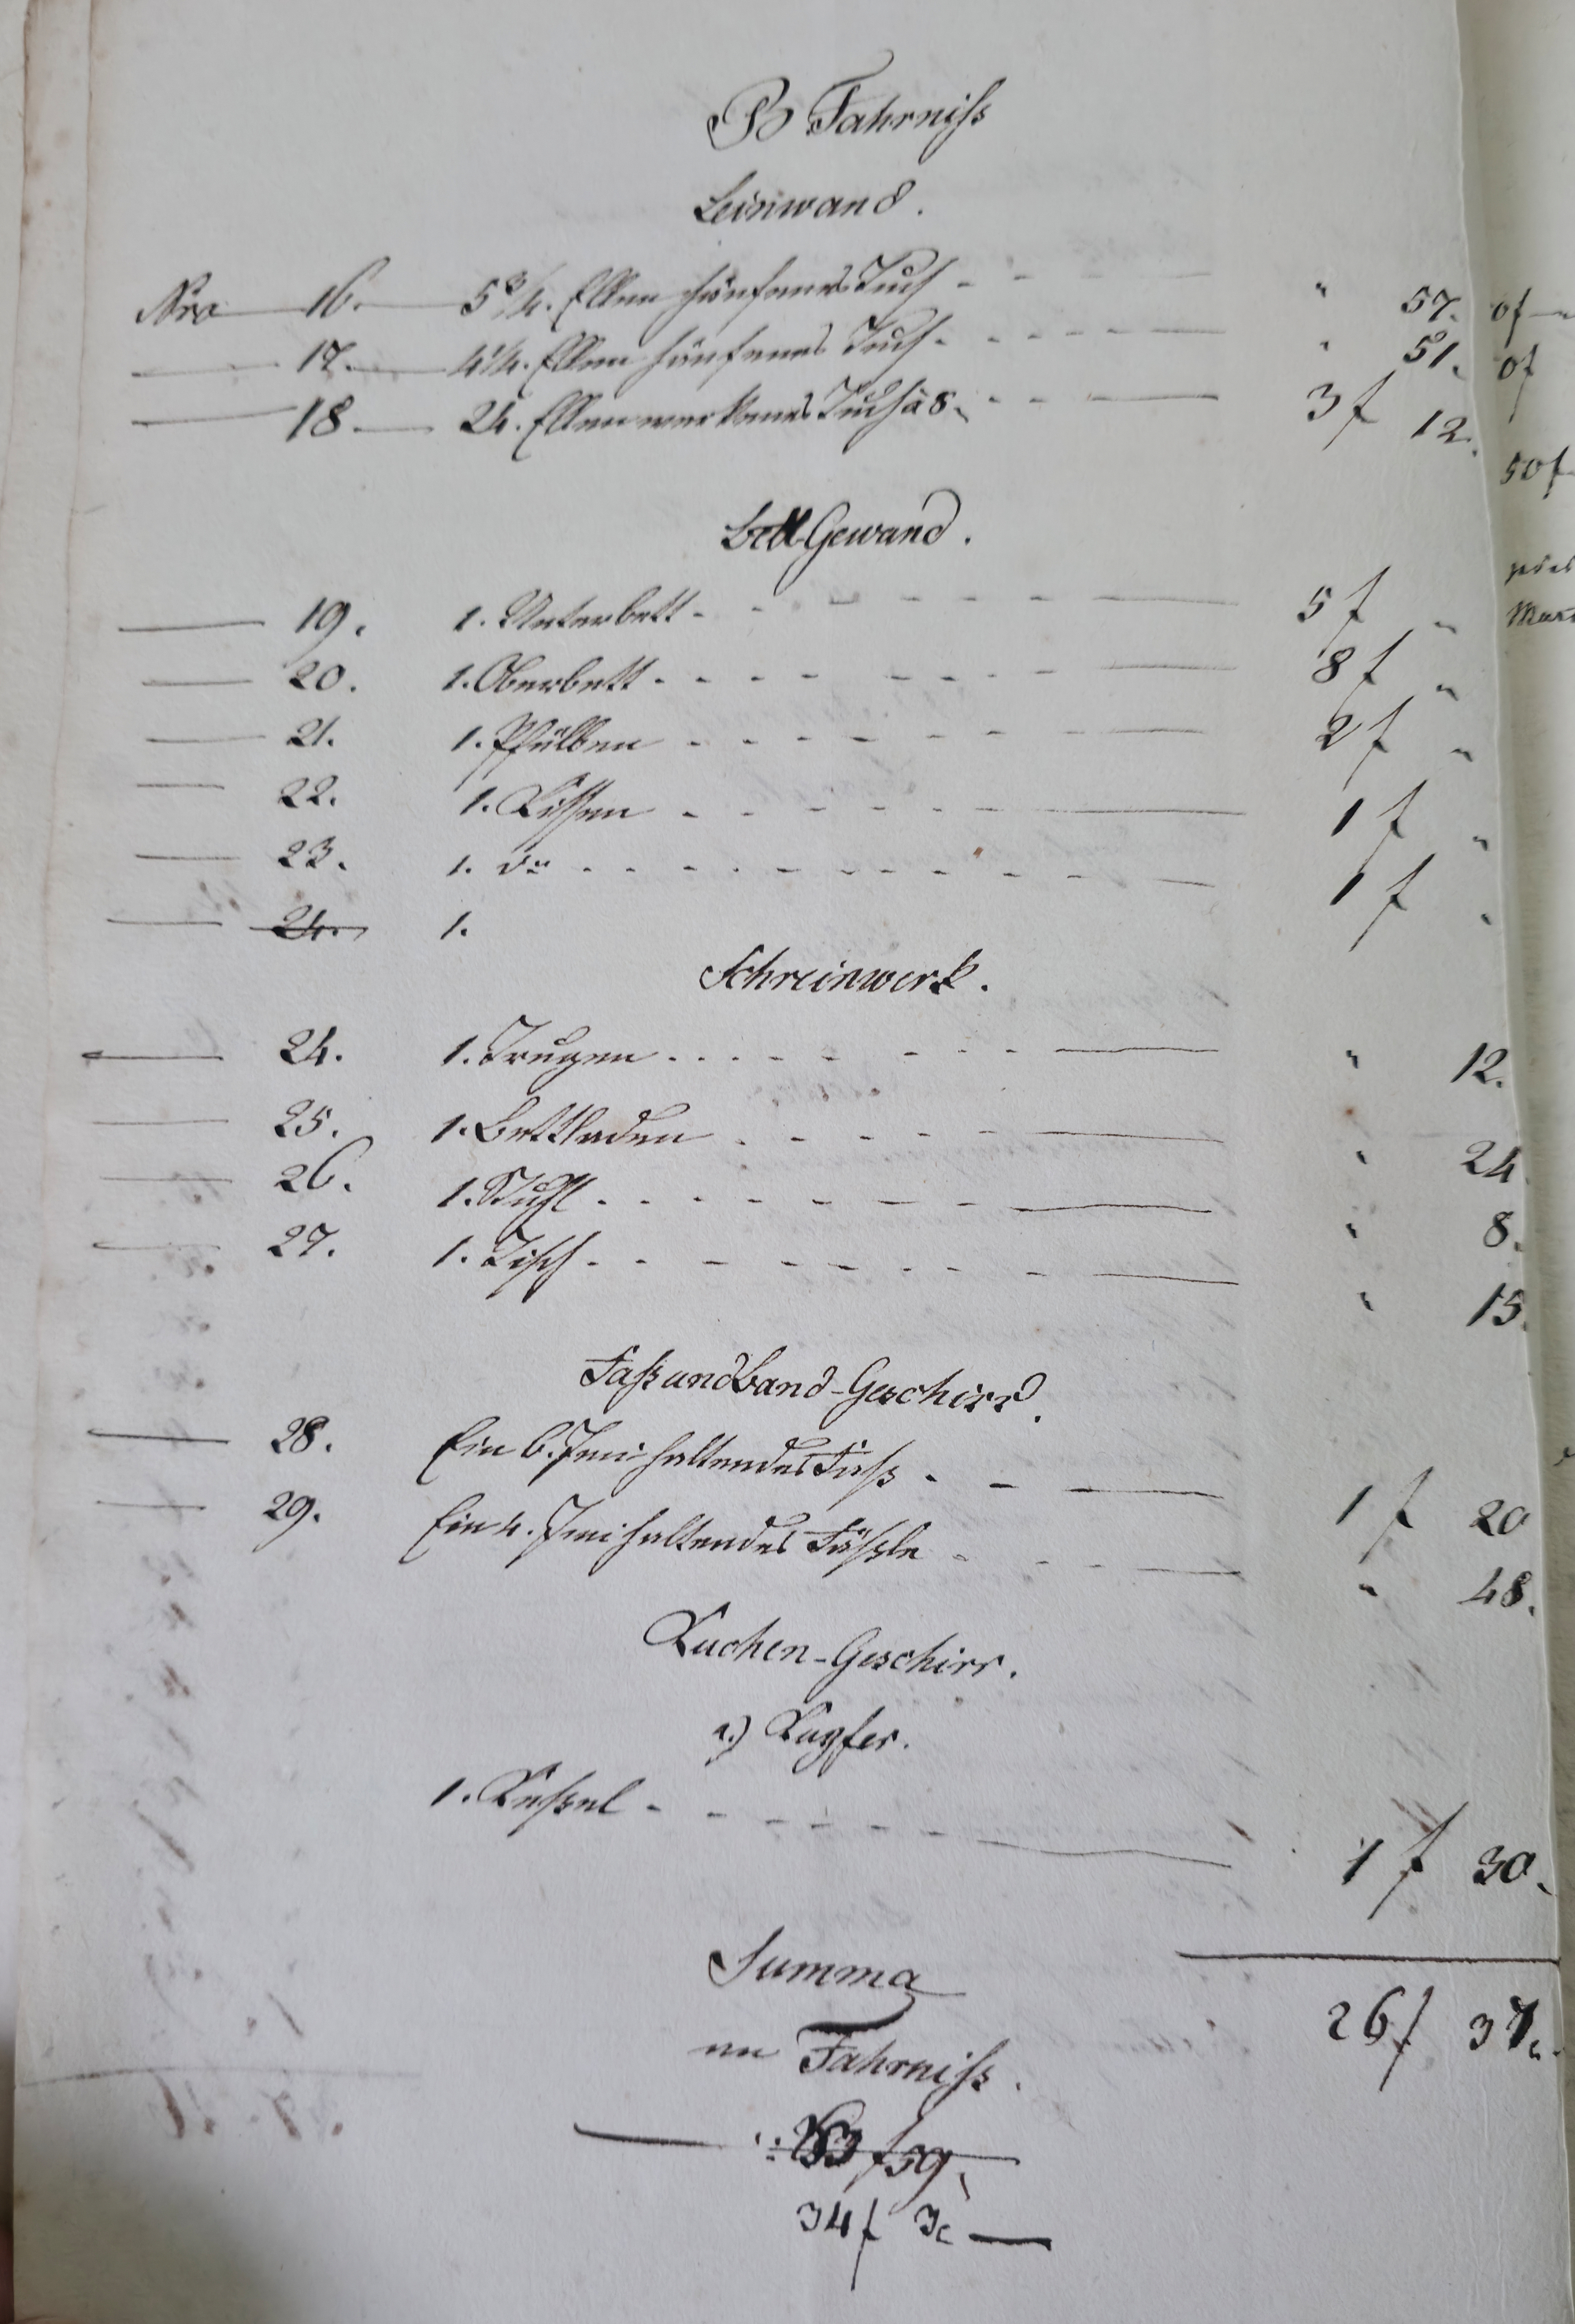 B Fahrniß
Leinwand.
Nro 16. 5 3/4. Ellen hänfenes Tuch - - - " 57.
17. 4 1/4. Ellen hänfenes Tuch - - - " 51.
18. 24. Ellen werkenes Tuch à 8. - - 3 f 12.
Bett Gewand.
19. 1. Unterbett - - - 5 f "
20. 1. Oberbett - - - 8 f "
21. 1. Pfülben - - - 2 f "
22. 1. Kissen - - - 1 f "
23. 1. do - - - 1 f "
24. 1.
Schreinwerk.
24. 1. Trugen - - - " 12.
25. 1. Bettladen - - - " 24.
26. 1. Stuhl - - - " 8.
27. 1. Tisch - - - " 15.
Faß und Band-Geschirr.
28. Ein 6. Imi haltendes Faß - - - 1 f 20
29. Ein 4. Imi haltendes Fäßle - - - " 48.
Kuchen-Geschirr.
a.) Kupfer.
1. Keßel - - - 1 f 30.
Summa
an Fahrniß. 26 f 37.
34 f 3